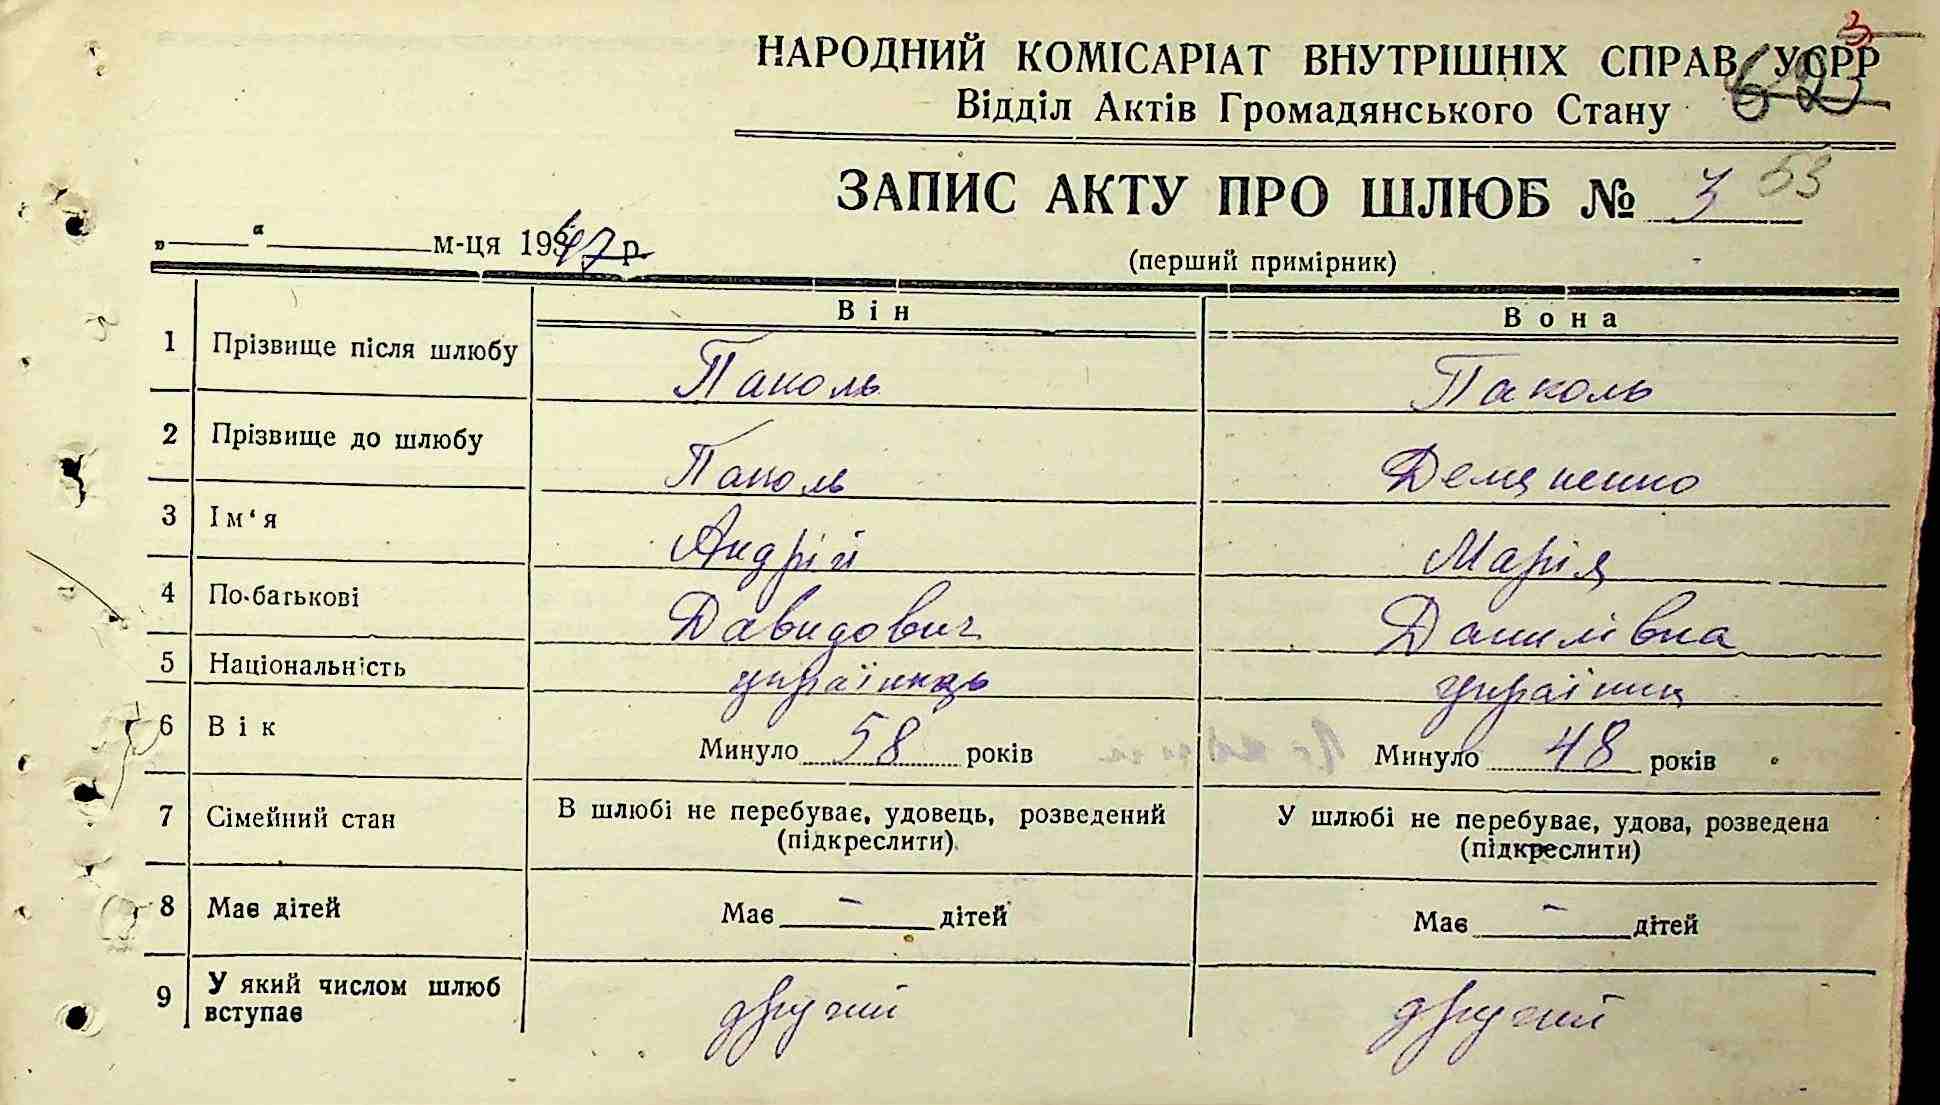 3
НАРОДНИЙ КОМІСАРІАТ ВНУТРІШНІХ СПРАВ УСРР
Відділ Актів Громадянського Стану
ЗАПИС АКТУ ПРО ШЛЮБ № 3 53
„ “ м-ця 1947 р.
(перший примірник)
Він Вона
1 Прізвище після шлюбу Паколь Паколь
2 Прізвище до шлюбу Паколь Демченко
3 Ім‘я Андрій Марія
4 По-батькові Давидович Данилівна
5 Національність українець україн
6 Вік Минуло 58 років Минуло 48 років
7 Сімейний стан В шлюбі не перебуває, удовець, розведений (підкреслити) У шлюбі не перебуває, удова, розведена (підкреслити)
8 Має дітей Має – дітей Має – дітей
9 У який числом шлюб вступає другий другий